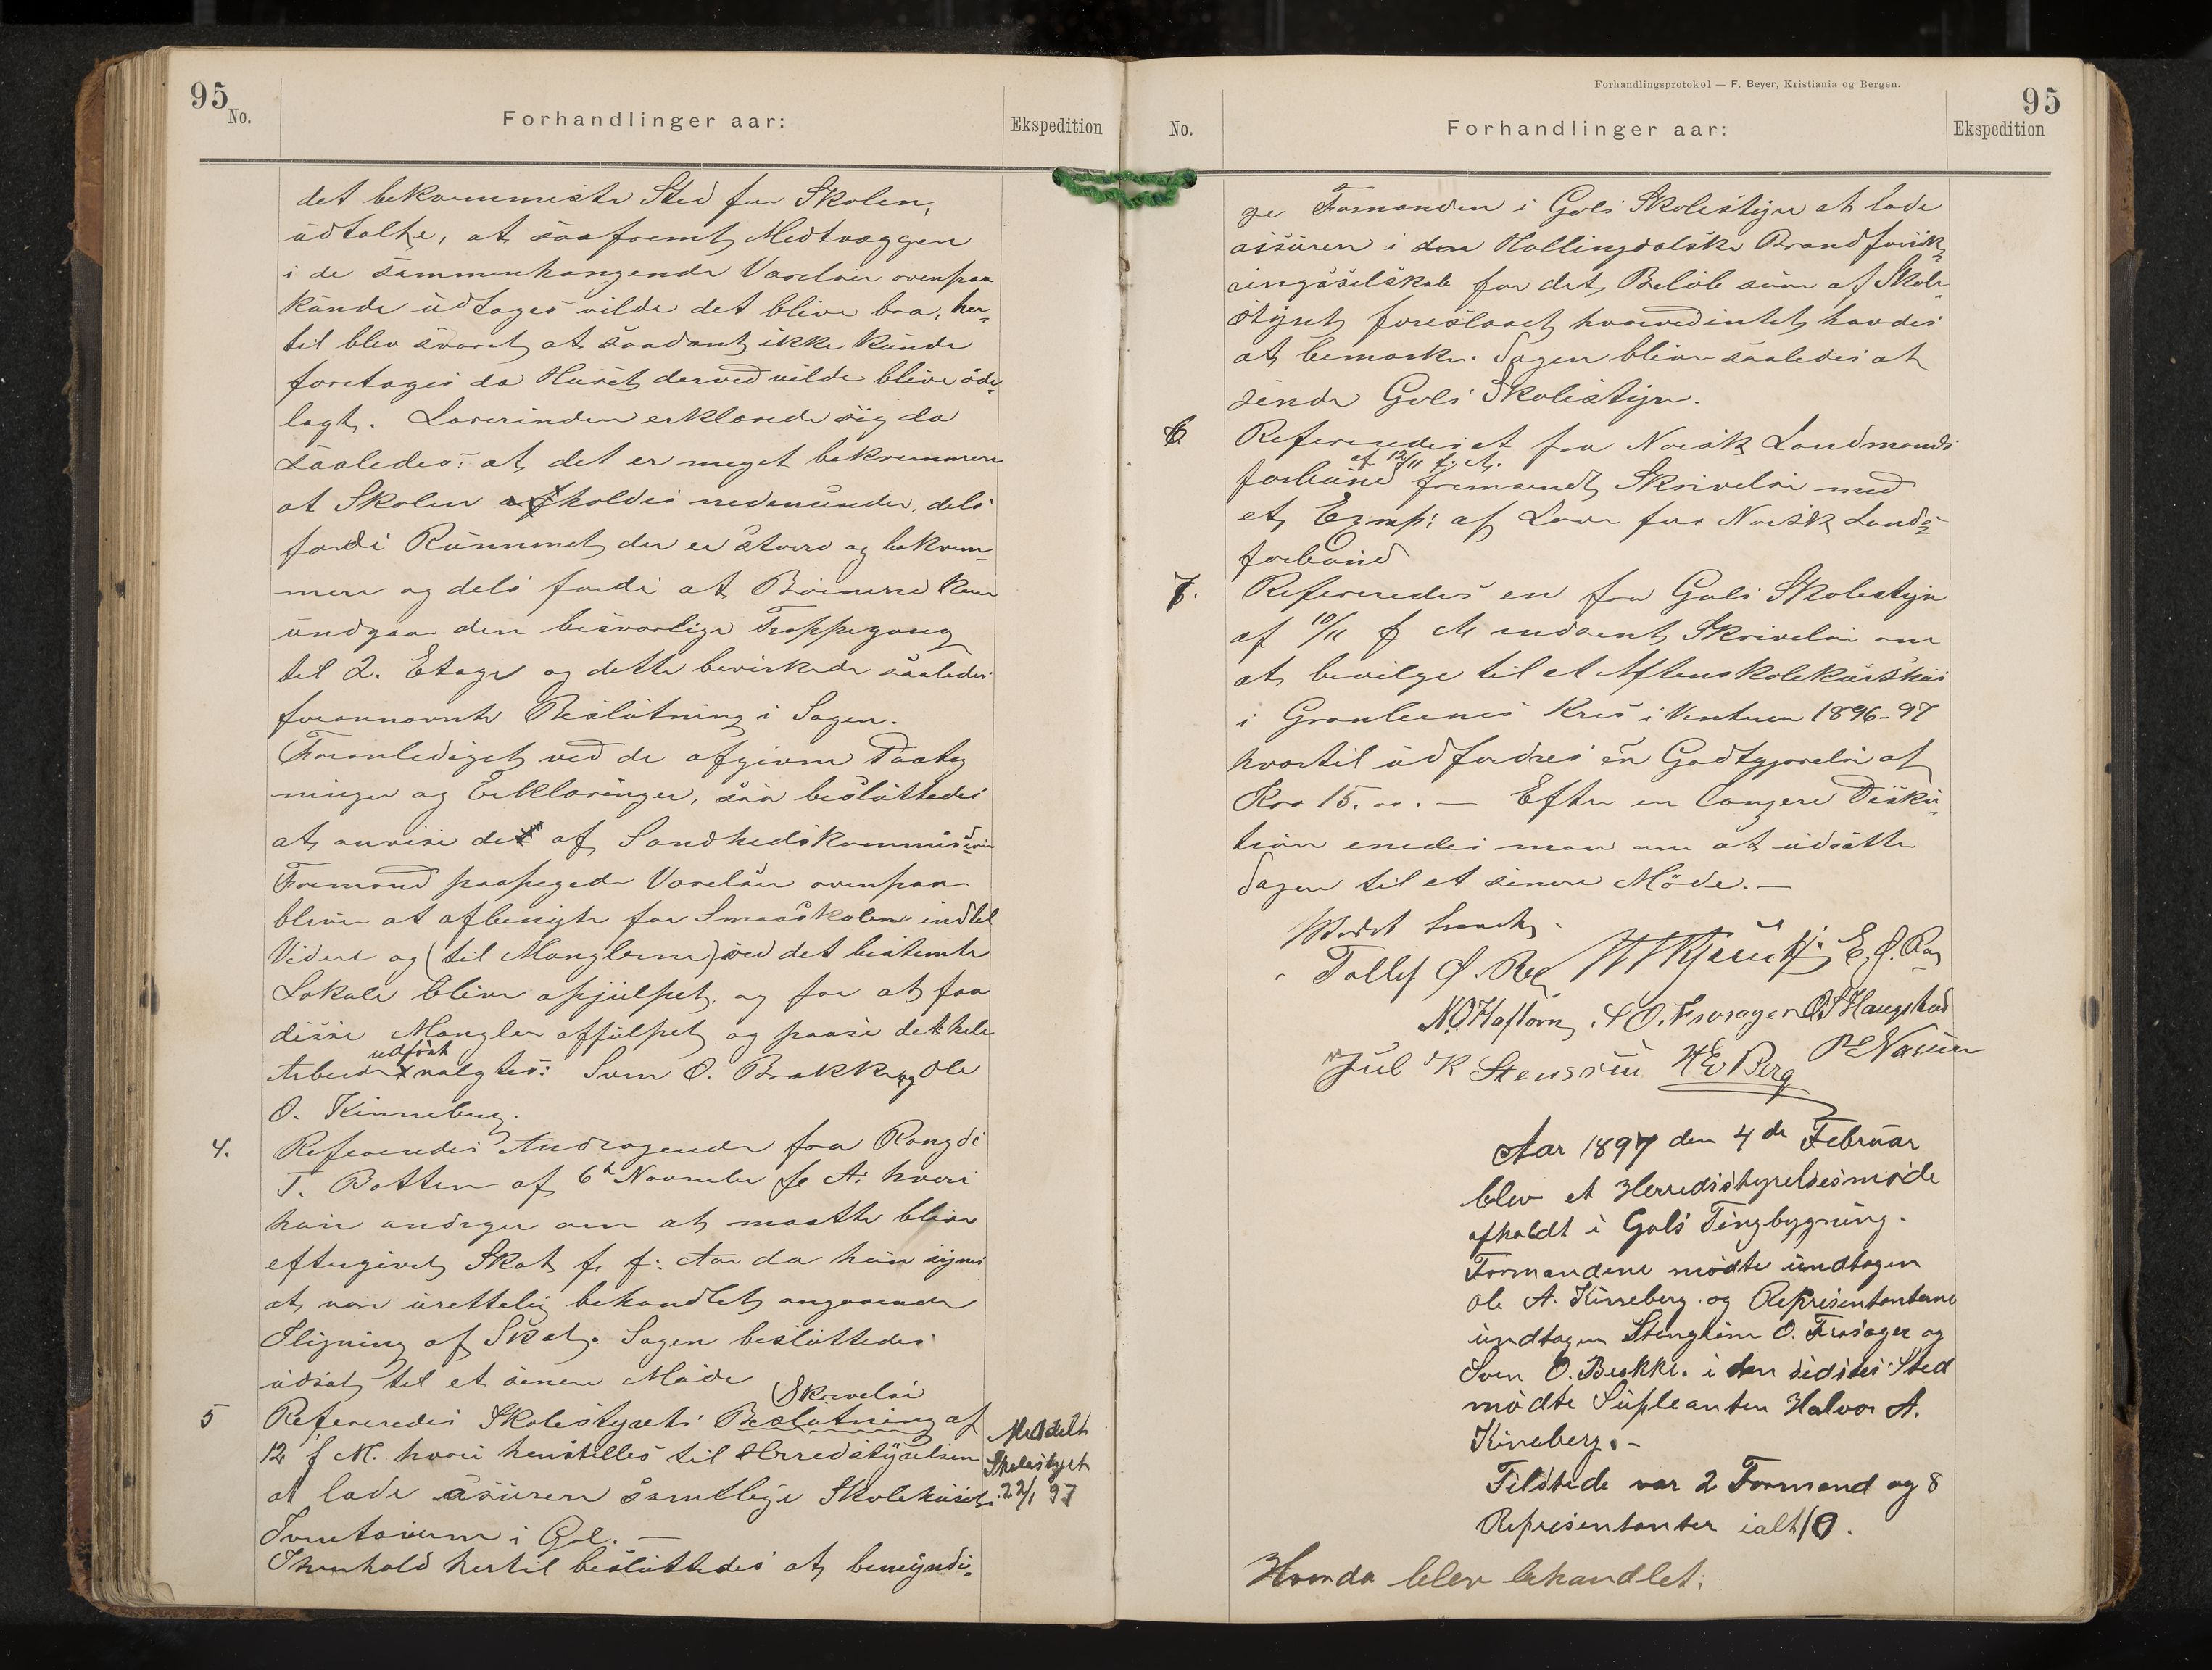 95
No.
Forhandlinger aar:
Ekspedition
det bekvemmeste Sted for Skolen,
udtalte, at saafremt Midtvæggen
i de sammenhængende Værelser ovenpaa
kunde udtages vilde det blive bra, her-
til blev svaret at saadant ikke kunde
foretages da Huset derved vilde blive öde-
lagt. Lærerinden erklærede sig da
saaledes: at det er meget bekvemmere
at Skolen afholdes nedenunder, dels
fordi Rummet der er større og bekvem-
mere og dels fordi at Børnene kan
undgaa den besværlige Trappegang
til 2. Etage og dette bevirkede saaledes
forannævnte Beslutning i Sagen.
Foranlediget ved de afgivne Paateg
ninger og Erklæringer, saa besluttedes
at anvise det af Sundhedskommissions
Formand paapegede Værelser ovenpaa
bliver at afbenytte for Smaaskolen indtil
Videre og (til Manglerne) ved det bestemte
Lokale bliver afhjulpet, og for at faa
disse Mangler afhjulpet og paase det hele
udført
Arbeide valgtes: Sven O. Brakke og Ole
O. Kinneberg.
4.
Refereredes Andragende fra Rangdi
T. Botten af 6te November f. A. hvori
hun andrager om at maatte blive
eftergivet Skat f. f. Aar da hun synes
at være urettelig behandlet angaaende
Iligning af Skat. Sagen besluttedes
udsat til et senere Møde
Skrivelse
5
Refereredes Skolestyrets Beslutning af
12 f M. hvori henstilles til Herredstyrelsen
at lade assurere samtlige Skolehusets
Inventarium i Gol. —
I henhold hertil besluttedes at bemyndi-
Meddelt
Skolestyret
22/1 97
Forhandlingsprotokol — F. Beyer, Kristiania og Bergen.
95
No.
Forhandlinger aar:
Ekspedition
ge Formanden i Gols Skolestyre at lade
assurere i den Hallingdalske Brandforsik-
ringsselskab for det Beløb som af Skole-
styret foreslaaet hvorved intet havdes
at bemærke. Sagen bliver saaledes at
sende Gols Skolestyre.
6
Refereredes et fra Norsk Landmands
af 12/11 f. A.
forbund fremsendt Skrivelse med
et Exmp: af Love for Norsk Lands-
forbund
7.
Refereredes en fra Gols Skolestyre
af 10/11 f A indsent Skrivelse om
at bevilge til et Aftenskolekursus
i Granheimes Kres i Vinteren 1896-97
hvortil udfordres en Godtgjørelse af
Kro 15.00. — Efter en længere Disku-
sion enedes man om at udsætte
Sagen til et senere Møde. —
Mødet hævet.
Tollef O. Ree E. O. Ree
N. O. Haftorn, S O. Frøsager O S Haugstad
Jul K Stenssen H E Berg
Aar 1897 den 4de Februar
blev et Herredsstyrelsesmøde
afholdt i Gols Tingbygning.
Formændene mødte undtagen
Ole A. Kinneberg og Repræsentanterne
undtagen Stengrim O. Frøsager og
Sven O. Brakke. i den sidstes Sted
mødte Supleanten Halvor A.
Kinneberg. -
Tilstede var 2 Formænd og 8
Representanter ialt 10.
Hvorda blev behandlet: